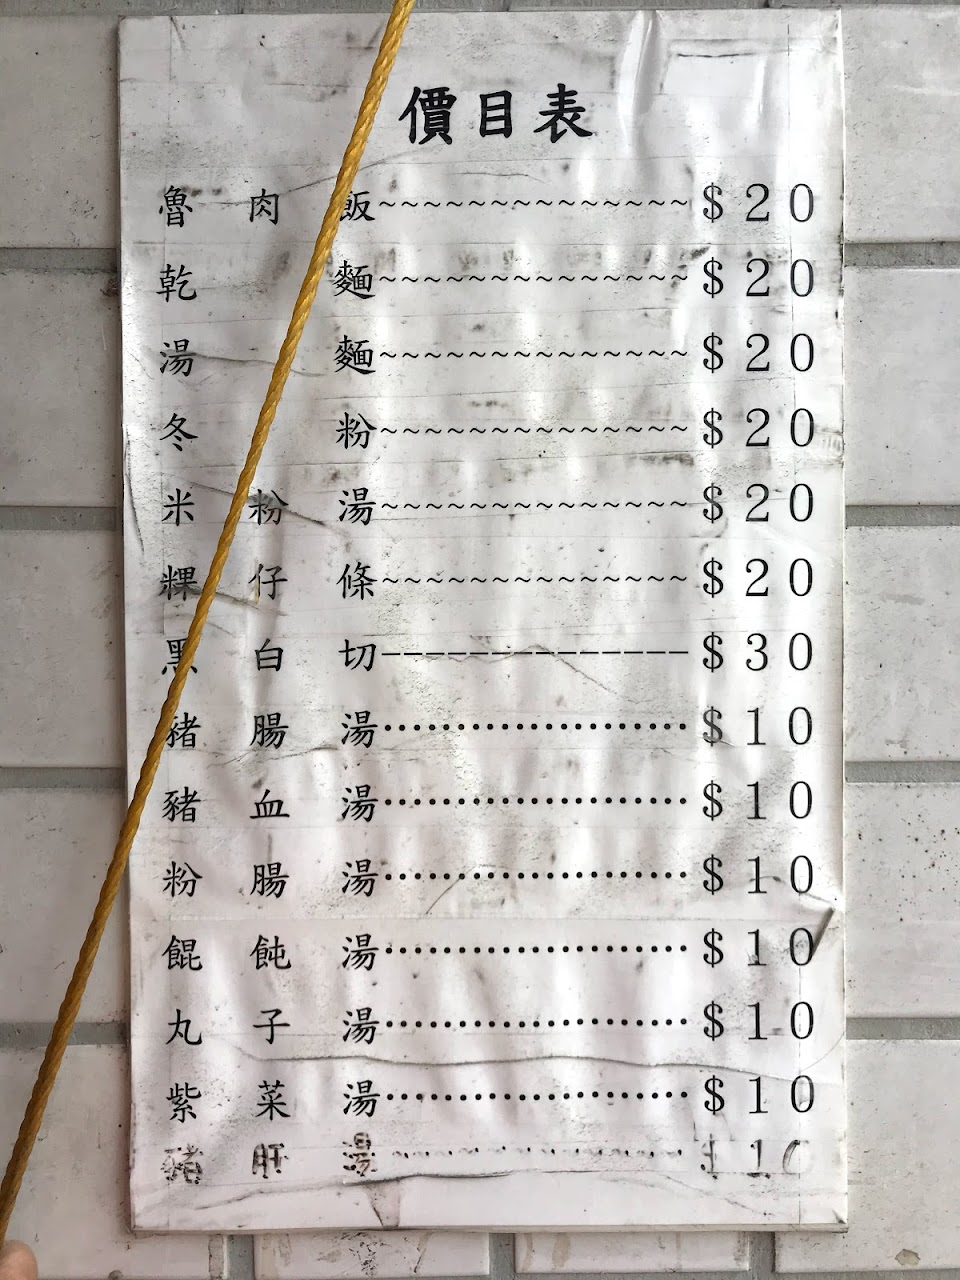 價目表
魯肉飯~~~~~~~~~~~~~~$20
乾麵~~~~~~~~~~~~~~$20
湯麵~~~~~~~~~~~~~~$20
冬粉~~~~~~~~~~~~~~$20
米粉湯~~~~~~~~~~~~~~$20
粿仔條~~~~~~~~~~~~~~$20
黑白切--------------$30
豬腸湯·····················$10
豬血湯·····················$10
粉腸湯·····················$10
餛飩湯·····················$10
丸子湯·····················$10
紫菜湯·····················$10
豬肝湯·····················$10